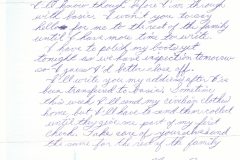 I'll know though before I'm through
with basics. I want you to say
hello for me to the rest of the family
until I have more time to write.
I have to polish my boots yet
tonight so we have inspection tomorrow
so I guess I'd better close off.
I'll write you my address after I've
been transferred to basics. Sometime
this week I'll send my civilian clothes
home, but I'll have to send them collect
until they give me part of my first
check. Take care of yourselves and
the same for the rest of the family